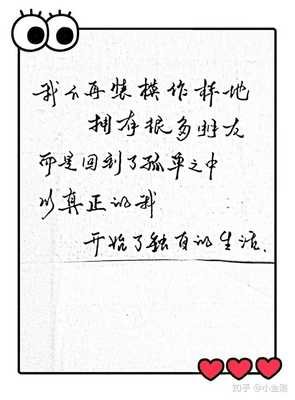 我不再装模作样地
拥有很多朋友
而是回到了孤单之中
以真正的我
开始了独自的生活.
知乎 @小金刚